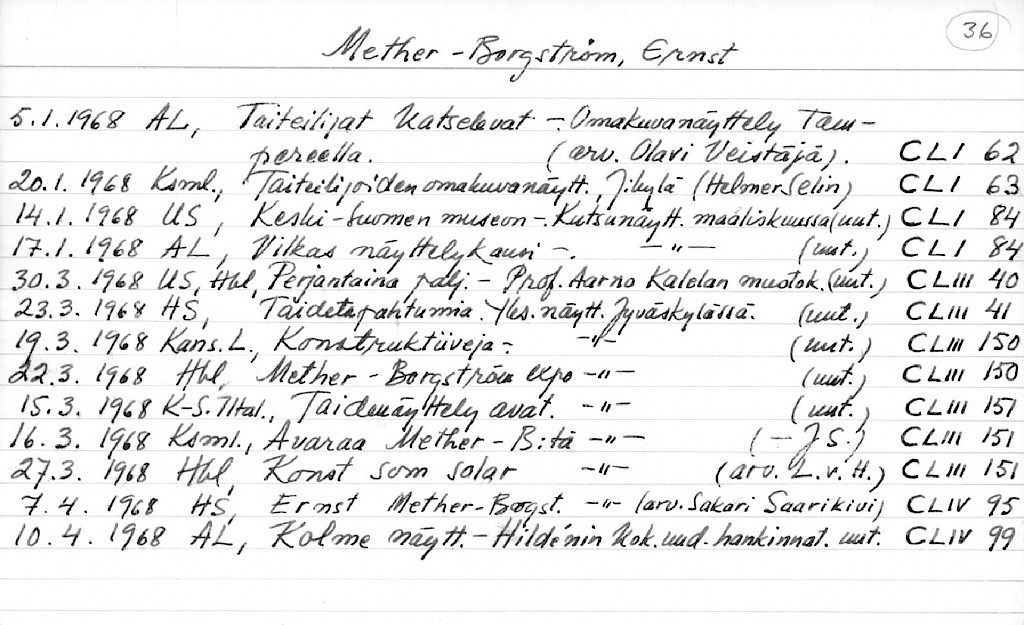 36
Mether-Borgström, Ernst
5.1.1968 AL, Taiteilijat Katselevat - Omakuvanäyttely Tam-
pereella. (arv. Olavi Veistäjä). CLI 62
20.1.1968 Ksml., Taiteilijoiden omakuvanäytt., (Helmer Selin) CLI 63
14.1.1968 US, Keski-Suomen museon -. Kutsunäytt. maaliskuussa (uut.) CLI 84
17.1.1968 AL, Vilkas näyttelykausi -. -"- (uut.) CLI 84
30.3.1968 US, Hbl, Perjantaina palj. - Prof. Aarno Kalelan muotok. (uut.) CLIII 40
23.3.1968 HS, Taidetapahtumia. Yks. näytt. Jyväskylässä. (uut.) CLIII 41
19.3.1968 Kans.L., Konstruktiiveja - -"- (uut.) CLIII 150
22.3.1968 Hbl, Mether-Borgström expo -"- (uut.) CLIII 150
15.3.1968 K-S. Ilta l., Taidenäyttely avat. -"- (uut.) CLIII 151
16.3.1968 Ksml., Avaraa Mether-B:tä -"- (-J S.) CLIII 151
27.3.1968 Hbl, Konst som solar -"- (arv. L.v.H.) CLIII 151
7.4.1968 HS, Ernst Mether-Borgst. -"- (arv. Sakari Saarikivi) CLIV 95
10.4.1968 AL, Kolme näytt. - Hildénin kok. uud. hankinnat. uut. CLIV 99